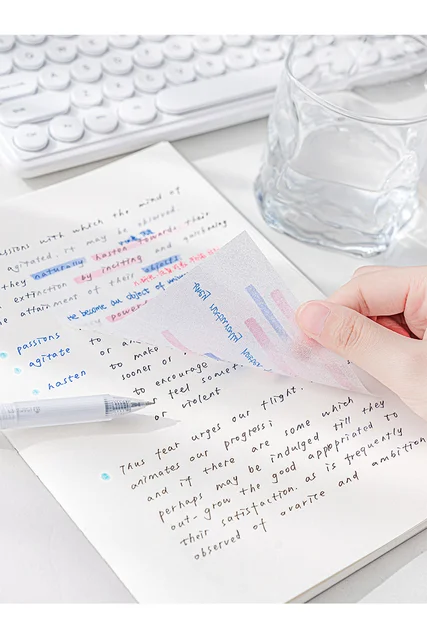 assions with which the mind of
agitated. it may be observed.
they naturally hasten towards their
extinction by inciting and quickening
e attainment of their objects
me become our object of
powers
passions to
agitate or an
to make
hasten sooner or
to encourage
feel somet
or violent
Thus fear urges our flight.
animates our progress;
and if there are some which
perhaps may be indulged till they
out-grow the good appropriated to
their satisfaction. as is frequently
observed of avarice and ambition